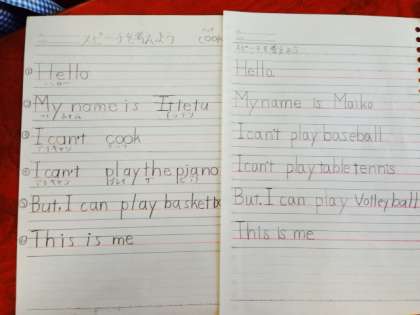 スピーチを考えよう
cook
① Hello
② My name is
③ I can't cook
④ I can't play the piano
⑤ But, I can play basketb
⑥ This is me
スピーチを考えよう
Hello
My name is Maiko
I can't play baseball
I can't play table tennis
But, I can play volleyball
This is me